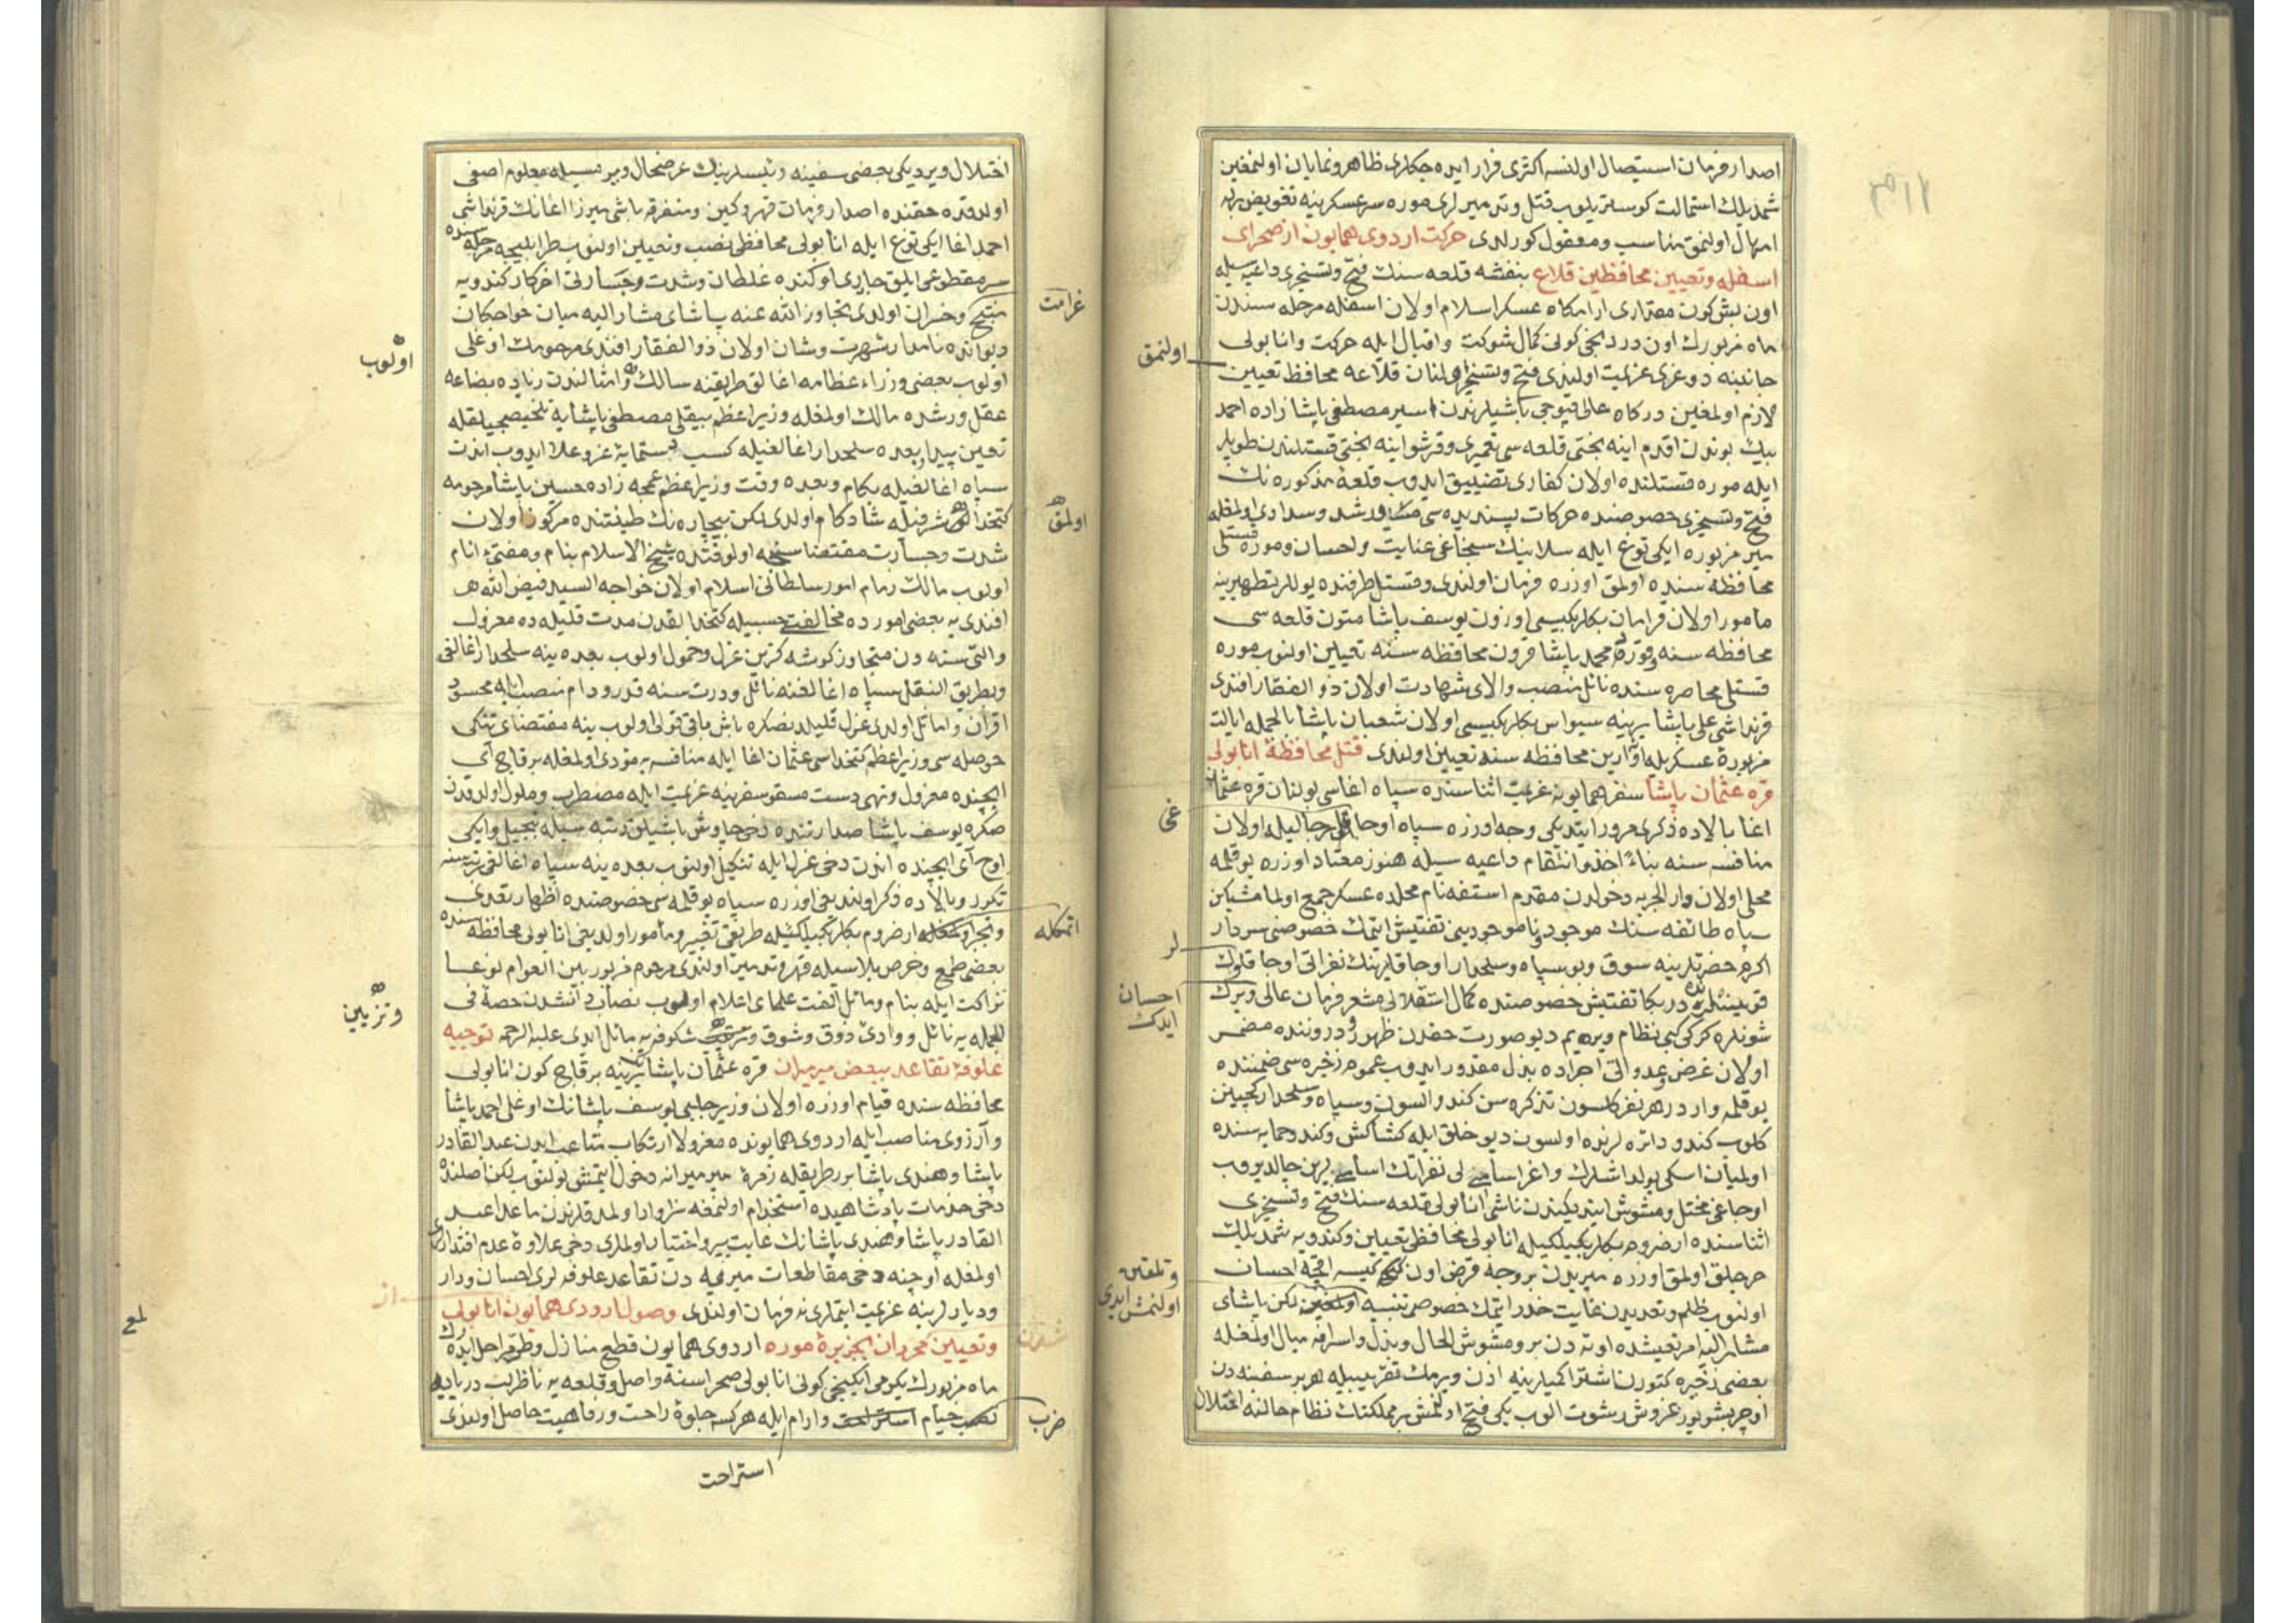 اصدار فرمان استیصال اولنسه اکثری فرار ایده جکلری ظاهر و نمایان اولنمغین
شمدیلك استمالت کوستریلوب قتل و تدمیرلری موره سرعسکرینه تفویض برله
امهال اولنمق مناسب و معقول کورلدی حرکت اردوی همایون از صحرای
اسفله و تعیین محافظین قلاع بنفشه قلعه سنك فتح و تسخیری داعیه سیله
اون بش کون مقداری ارامکاه عسکر اسلام اولان اسفله مرحله سندن
ماه مزبورك اون دردنجی کونی کمال شوکت و اقبال ایله حرکت و انابولی
جانبنه دوغری عزیمت اولندی فتح و تسخیر اولنان قلاعه محافظ تعیین
لازم اولمغین درکاه عالی قپوجی باشیلرندن اسیر مصطفی پاشا زاده احمد
بیك بوندن اقدم اینه بختی قلعه سی تعمیری و قرشو اینه بختی قستلندن طوپلر
ایله موره قستلنده اولان کفاری تضییق ایدوب قلعۀ مذکوره نك
فتح و تسخیری خصوصنده حرکات پسندیده سی رشد و سدادی اولمغله
میر مزبوره ایکی توغ ایله سلانیك سنجاغی عنایت و احسان و موره قستلی
محافظه سنده اولمق اوزره فرمان اولندی و قستل طرفنده یوللر تطهیرینه
مامور اولان قرامان بکلربکیسی اوزون یوسف پاشا متون قلعه سی
محافظه سنه و قره محمد پاشا قرون محافظه سنه تعیین اولنوب موره
قستلی محاصره سنده نائل منصب والای شهادت اولان ذوالفقار افندی
قرنداشی علی پاشا یرینه سیواس بکلربکیسی اولان شعبان پاشا بالجمله ایالت
مزبوره عسکریله اوارین محافظه سنه تعیین اولندی قتل محافظۀ انابولی
قره عثمان پاشا سفر همایونه عزیمت اثناسنده سپاه اغاسی بولنان قره عثمان
اغا بالاده ذکری مرور ایتدیکی وجه اوزره سپاه اوجاقلی رجالیله اولان
منافسه سنه بناءً اخذ و انتقام داعیه سیله هنوز معتاد اوزره یوقلمه
محلی اولان دار الحربه دخولدن مقدم استفه نام محلده عسکر جمع اولمامشیکن
سپاه طائفه سنك موجود و ناموجودینی تفتیش ایتمك خصوصنی سردار
اکرم حضرتلرینه سوق و بو سپاه و سلحدار اوجاقلرینك نفراتی اوجاقلوك
دربکا تفتیش خصوصنده کمال استقلالی مشعر فرمان عالی ویرك
شونلره کرکی کبی نظام ویرهیم دیو صورت حقدن ظهور و دروننده مضمر
اولان غرض و عدوانی اجراده بذل مقدور ایدوب عموم ذخیره سی ضمننده
یوقلمه واردر هر نفر کلسون تذکره سن کندو السون و سپاه و سلحدار کجیین
کلوب کندو دائره لرنده اولسون دیو خلق ایله کشاکش و کندو حمایه سنده
اولمیان اسکی یولداشلرك و اغر اساملی نفراتك اساملرین چالدیروب
اوجاغی مختل و مشوش ایتدیکندن ناشی انابولی قلعه سنك فتح و تسخیری
اثناسنده ارضروم بکلربکیلکیله انابولی محافظی تعیین و کندویه شمدیلك
خرجلق اولمق اوزره میریدن بر وجه قرض اون کیسه اقچه احسان
اولنوب ظلم و تعدیدن غایت حذر ایتمك خصوصی تنبیه اولنمغین لکن پاشای
مشار الیه امر تعیشده اوته دن برو مشوش الحال و بذل و اسرافه میال اولمغله
بعضی ذخیره کتورن اشترا کمیلرینه اذن ویرمك تقریبیله هر بر سفینه دن
اوچر بشر یوز غروش رشوت الوب یکی فتح اولنمش بر مملکتك نظام حالنه اختلال
اولنمق
غی
لر
احسان
ایدك
و تلقین
اولنمش ایدی
اختلال ویردیکی بعضی سفینه رئیسلرینك عرضحال ویرمسیله معلوم اصفی
اولدقده حقنده اصدار فرمان قهر و کین و متفرقه باشی میرزا اغانك قرنداشی
احمد اغا ایکی توغ ایله انابولی محافظی نصب و تعیین اولنوب طرابلیجه مرحله سنده
سر مقطوعی ایلق جابری اوکنده غلطان و شدت و جسارتی اخر کار کندویه
منتج و خسران اولدی تجاوز الله عنه پاشای مشار الیه میان خواجکان
دیوانده نامدار شهرت و شان اولان ذوالفقار افندی مرحومك اوغلی
اولوب بعضی وزراء عظامه اغالق طریقنه سالك و امثالندن زیاده بضاعه
عقل و رشده مالك اولمغله وزیر اعظم بیقلی مصطفی پاشایه تلخیصجیلقله
تعین پیدا و بعده سلحدار اغالغیله کسب دستمایۀ عز و علا ایدوب اندن
سپاه اغالغیله بکام و بعده وقت وزیر اعظم عمجه زاده حسین پاشا مرحومه
کتخدالق شرفیله شادکام اولدی لکن بیچاره نك طینتنده مرکوز اولان
شدت و جسارت مقتضاسنجه اولوقتده شیخ الاسلام بنام و مفتئ انام
اولوب مالك زمام امور سلطانی اسلام اولان خواجه السید فیض الله
افندی یه بعضی امورده مخالفت حسبیله کتخدالقدن مدت قلیله ده معزول
و التی سنه دن متجاوز کوشه کزین عزل و خمول اولوب بعده ینه سلحدار اغالغی
و بطریق النقل سپاه اغالغنه نائل و درت سنه قدر و دام منصب ایله محسود
اقران و اماثل اولدی عزل قلیلدنصکره باش باقی قولی اولوب ینه مقتضای تنکی
حوصله سی وزیر اعظم کتخداسی عثمان اغا ایله منافسه یه مؤدی اولمغله برقاچ آی
ایچنده معزول و تهی دست مسقو سفرینه عزیمت ایله مضطرب و ملول اولدقدن
صکره یوسف پاشا صدارتنده دخی چاوش باشیلق رتبه سیله تبجیل و ایکی
اوچ آی ایچنده اندن دخی عزل ایله تنکیل اولنوب بعده ینه سپاه اغالغی رتبه سنه
تکرر و بالاده ذکر اولندیغی اوزره سپاه یوقلمه سی خصوصنده اظهار تعدی
ارضروم بکلربکیلکیله طریقی تغییر و مامور اولدیغی انابولی محافظه سنده
بعضی طمع و حرص بلاسیله قهر و تدمیر اولندی مرحوم مزبور بین العوام نوعا
نزاکت ایله بنام و مائل الفت علمای اعلام اولوب نصاب دانشدن حصه فی
الجمله یه نائل و وادئ ذوق و شوق و شکوفه یه مائل ایدی علیه الرحمه توجیه
علوفۀ تقاعد ببعض میرمیران قره عثمان پاشا یرینه برقاچ کون انابولی
محافظه سنده قیام اوزره اولان وزیر چلبی یوسف پاشانك اوغلی احمد پاشا
و آرزوی مناصب ایله اردوی همایونده معزولا ارتکاب متاعب ایدن عبد القادر
پاشا و هندی پاشا بر طریقله زمرۀ میرمیرانه دخول ایتمش بولنوب لکن اصلنده
دخی خدمات پادشاهیده استخدام اولنمغه سزاوار اولمدقلرندن ماعدا عبد
القادر پاشا و هندی پاشانك غایت پیر و اختیار اولملری دخی علاوۀ عدم اقتدار
اولمغله اوچنه دخی مقاطعات میریه دن تقاعد علوفه لری احسان و دار
و دیارلرینه عزیمت ایتملری نه فرمان اولندی وصول اردوی همایون انابولی
و تعیین محرران بجزیرۀ موره اردوی همایون قطع منازل و طی مراحل ایده رك
ماه مزبورك یکرمی ایکینجی کونی انابولی صحراسنه واصل و قلعه یه ناظر لب دریاده
نصب خیام استراحت و ارام ایله هر کسه جلوۀ راحت و رفاهیت حاصل اولندی
غرامت
اولوب
اولمق
اتمکله
و تزیین
از
شدن
ضرب
استراحت